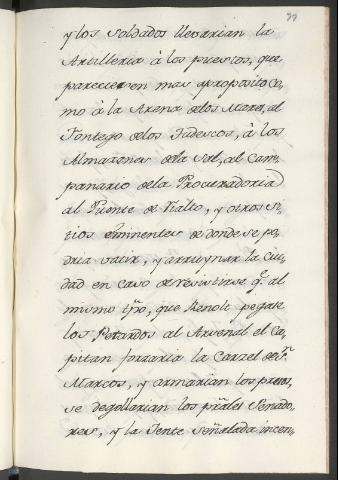 y los soldados lleuarian la
Artilleria à los puestos, que
pareciesen mas aproposito co,
mo à la Arena delos Moros, al
Fontego delos Tudescos, à los
Almazenes dela Sal, al Cam,
panario dela Procuradoria
al Puente de Rialto, y otros Si,
tios eminentes de donde se po,
dria vatir, y arruynar la ciu,
dad en caso de resistirse q.e al
mismo tpõ, que Renolt pegase
los Petardos al Arsenal el Ca,
pitan forzaria la Carzel de S.n
Marcos, y armarian los presos,
se degollarian los prales Senado,
res, y la Jente señalada incen,